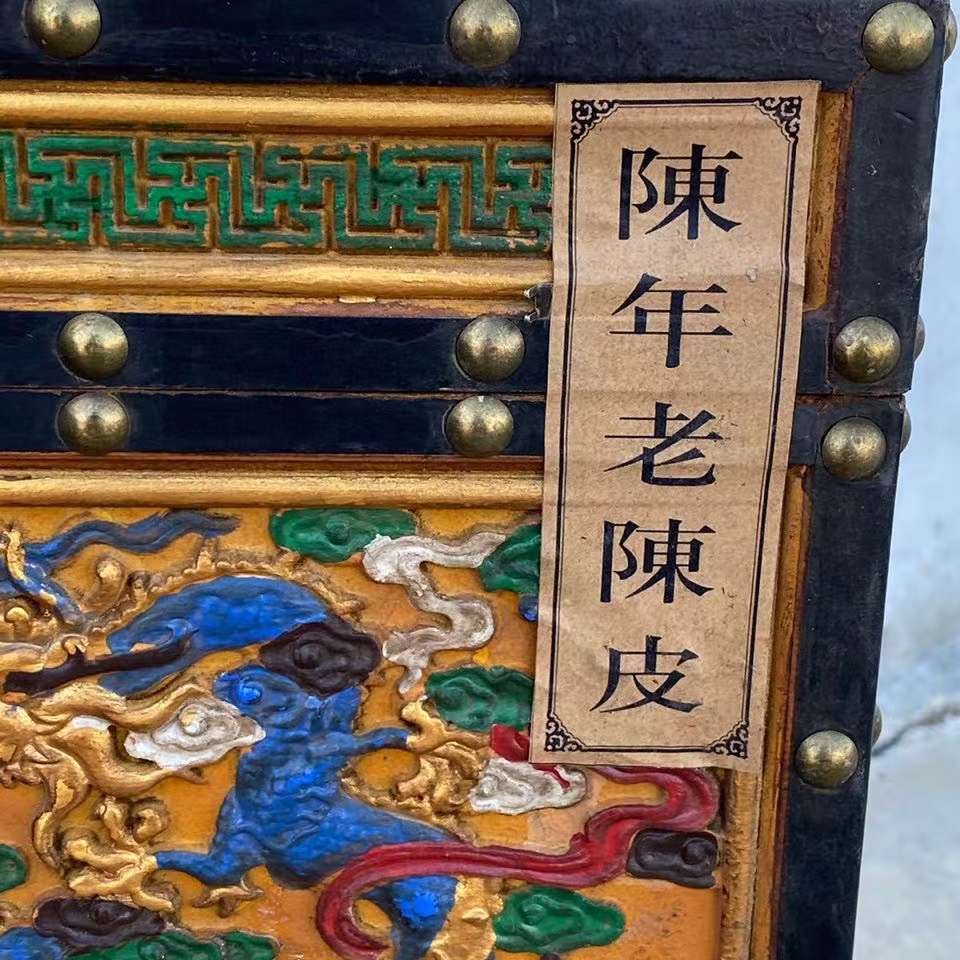 陳年老陳皮